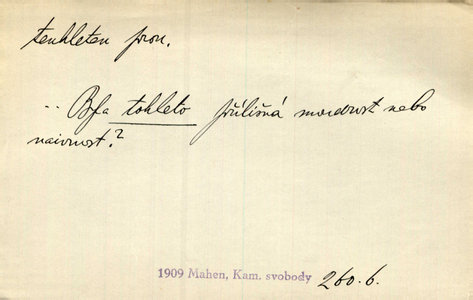 tenhleten pron.
.. Byla tohleto přílišná moudrost nebo
naivnost?
1909 Mahen, Kam. svobody 260.6.